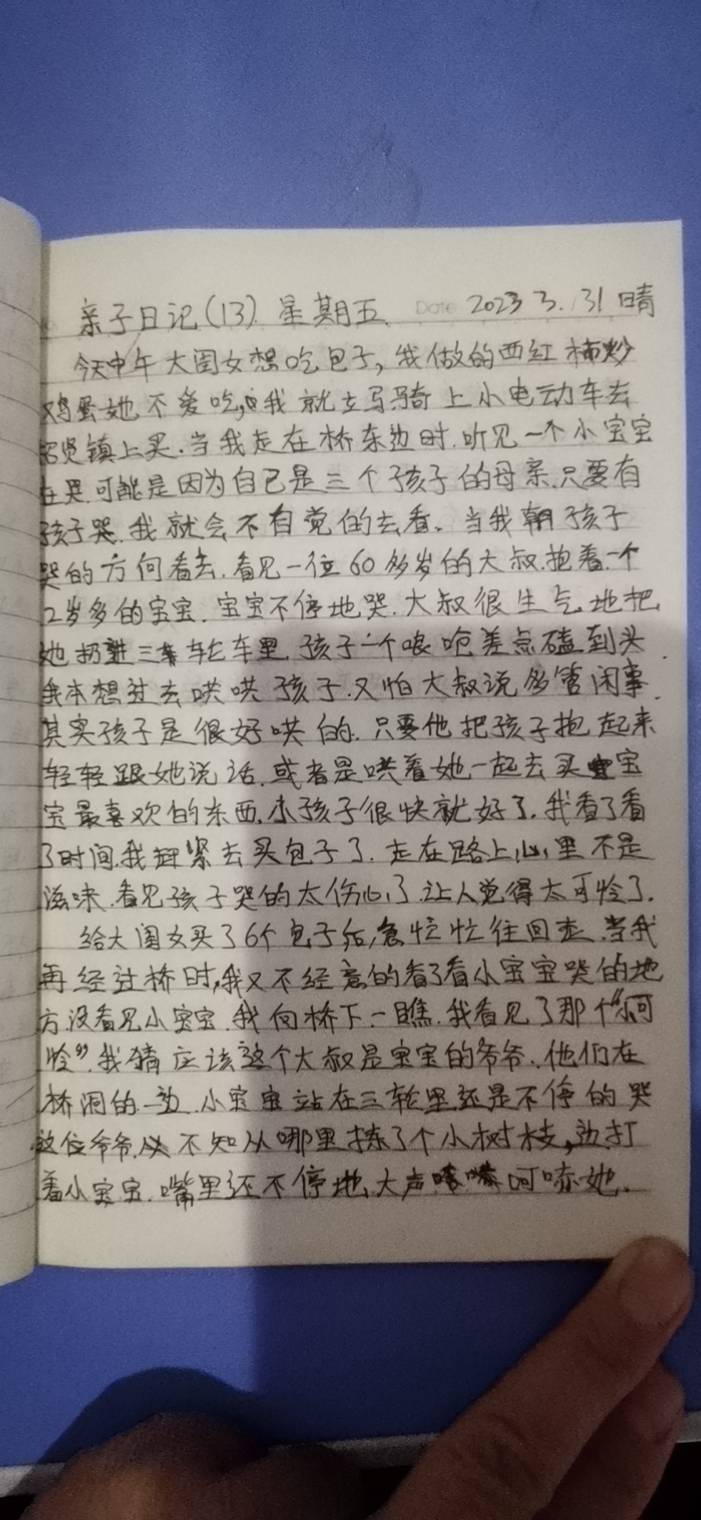 亲子日记(13) 星期五 Date 2023 3. 31 晴
今天中午大闺女想吃包子,我做的西红柿炒
鸡蛋她不爱吃,我就立马骑上小电动车去
镇上买.当我走在桥东边时.听见一个小宝宝
在哭.可能是因为自己是三个孩子的母亲.只要有
孩子哭.我就会不自觉的去看.当我朝孩子
哭的方向看去.看见一位60多岁的大叔.抱着一个
2岁多的宝宝.宝宝不停地哭.大叔很生气地把
她扔进三轮车里.孩子一个踉呛差点磕到头.
我本想过去哄哄孩子.又怕大叔说多管闲事.
其实孩子是很好哄的.只要他把孩子抱起来
轻轻跟她说话.或者是哄着她一起去买宝
宝最喜欢的东西.小孩子很快就好了.我看了看
了时间.我赶紧去买包子了.走在路上心里不是
滋味.看见孩子哭的太伤心了.让人觉得太可怜了.
给大闺女买了6个包子后,急忙忙往回走.当我
再经过桥时,我又不经意的看了看小宝宝哭的地
方没看见小宝宝.我向桥下一瞧.我看见了那个“可
怜”.我猜应该这个大叔是宝宝的爷爷.他们在
桥洞的一边.小宝宝站在三轮里还是不停的哭
这位爷爷.不知从哪里拣了个小树枝,边打
着小宝宝.嘴里还不停地大声呵哧她.